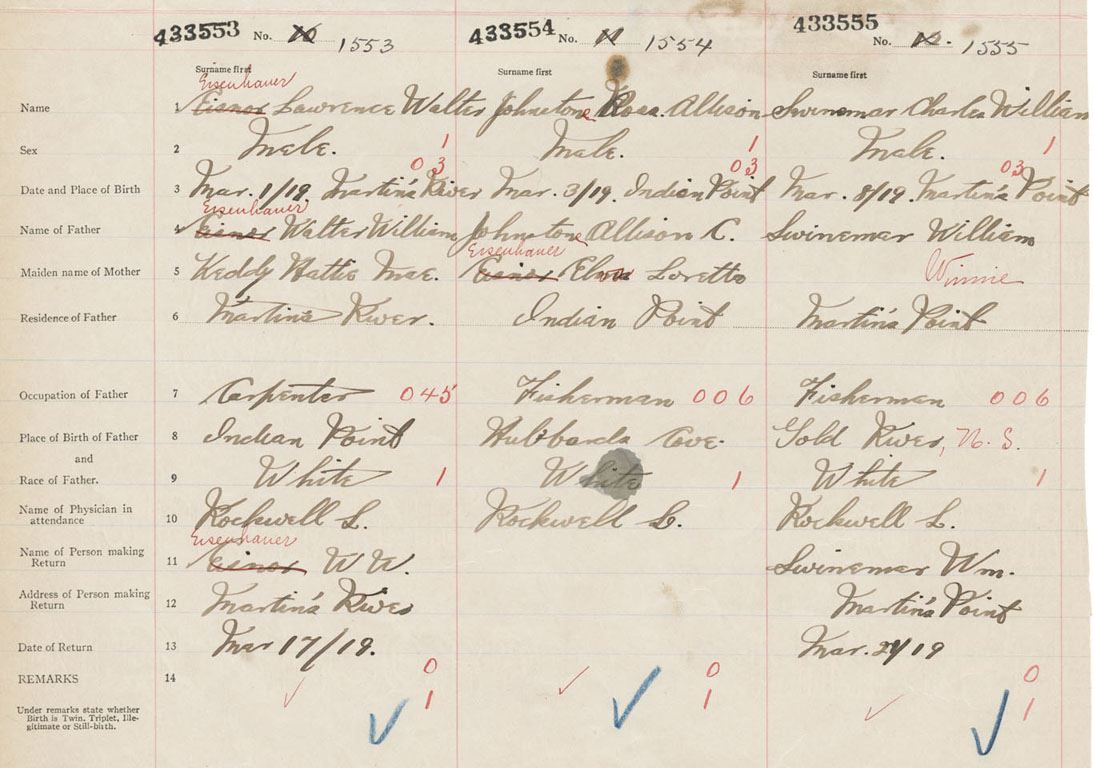 433553 No. 10 1553 433554 No. 11 1554 433555 No. 12. 1555
Surname first Surname first Surname first
Eisenhauer
Name 1 Eisnor Lawrence Walter Johnstone Ross Allison Swinemar Charles William
Sex 2 Male. 1 Male. 1 Male. 1
03 03 03
Date and Place of Birth 3 Mar. 1/19. Martin's River Mar. 3/19. Indian Point Mar. 8/19. Martin's Point
Eisenhauer
Name of Father 4 Eisnor Walter William Johnstone Allison C. Swinemar William
Eisenhauer
Maiden name of Mother 5 Keddy Hattie Mae. Eisnor Loretto Winnie
Residence of Father 6 Martin's River. Indian Point Martin's Point
Occupation of Father 7 Carpenter 045 Fisherman 006 Fisherman 006
Place of Birth of Father 8 Indian Point Hubbards Cove. Gold River, N. S.
and
Race of Father. 9 White 1 White 1 White 1
Name of Physician in attendance 10 Rockwell L. Rockwell L. Rockwell L.
Eisenhauer
Name of Person making Return 11 Eisnor W W. Swinemar Wm.
Address of Person making Return 12 Martin's River Martin's Point
Date of Return 13 Mar 17/19. Mar. /19
REMARKS 14 0 0 0
Under remarks state whether 1 1 1
Birth is Twin, Triplet, Ille-
gitimate or Still-birth.